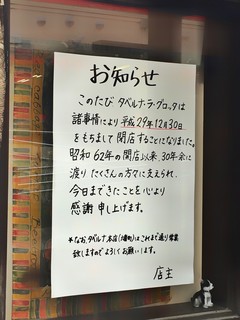 お知らせ
このたび タベルナ・ラ・グロッタは
諸事情により 平成29年12月30日
をもちまして閉店することになりました。
昭和62年の開店以来、30年余に
渡り たくさんの方々に支えられ、
今日まできたことを心より
感謝申し上げます。
*なお、タベルナ本店(堺町)はこれまで通り営業
致しますのでよろしくお願いします。
店主